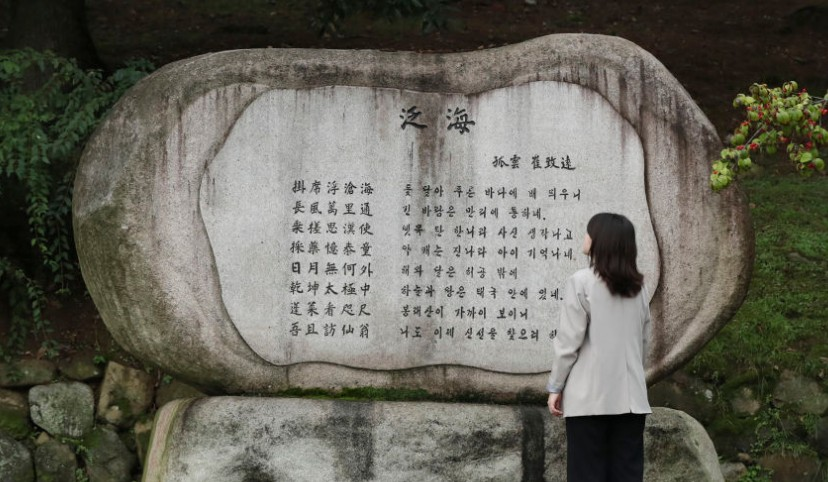 泛海
孤雲 崔致遠
掛席浮滄海
長風萬里通
乘槎思漢使
採藥憶秦童
日月無何外
乾坤太極中
蓬萊看咫尺
吾且訪仙翁
돛 달아 푸른 바다에 배 띄우니
긴 바람은 만리에 통하네.
뗏목 탄 한나라 사신 생각나고
약 캐는 진나라 아이 기억나네.
해와 달은 허공 밖에
하늘과 땅은 태극 안에 있네.
봉래산이 가까이 보이니
나도 이제 신선을 찾으려